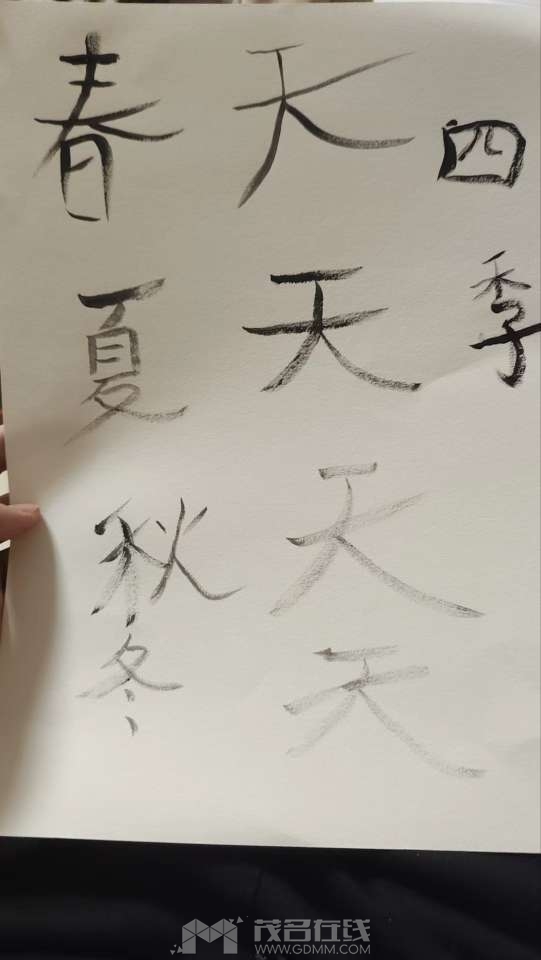 四季
春天
夏天
秋天
冬天
茂名在线
WWW.GDMM.COM